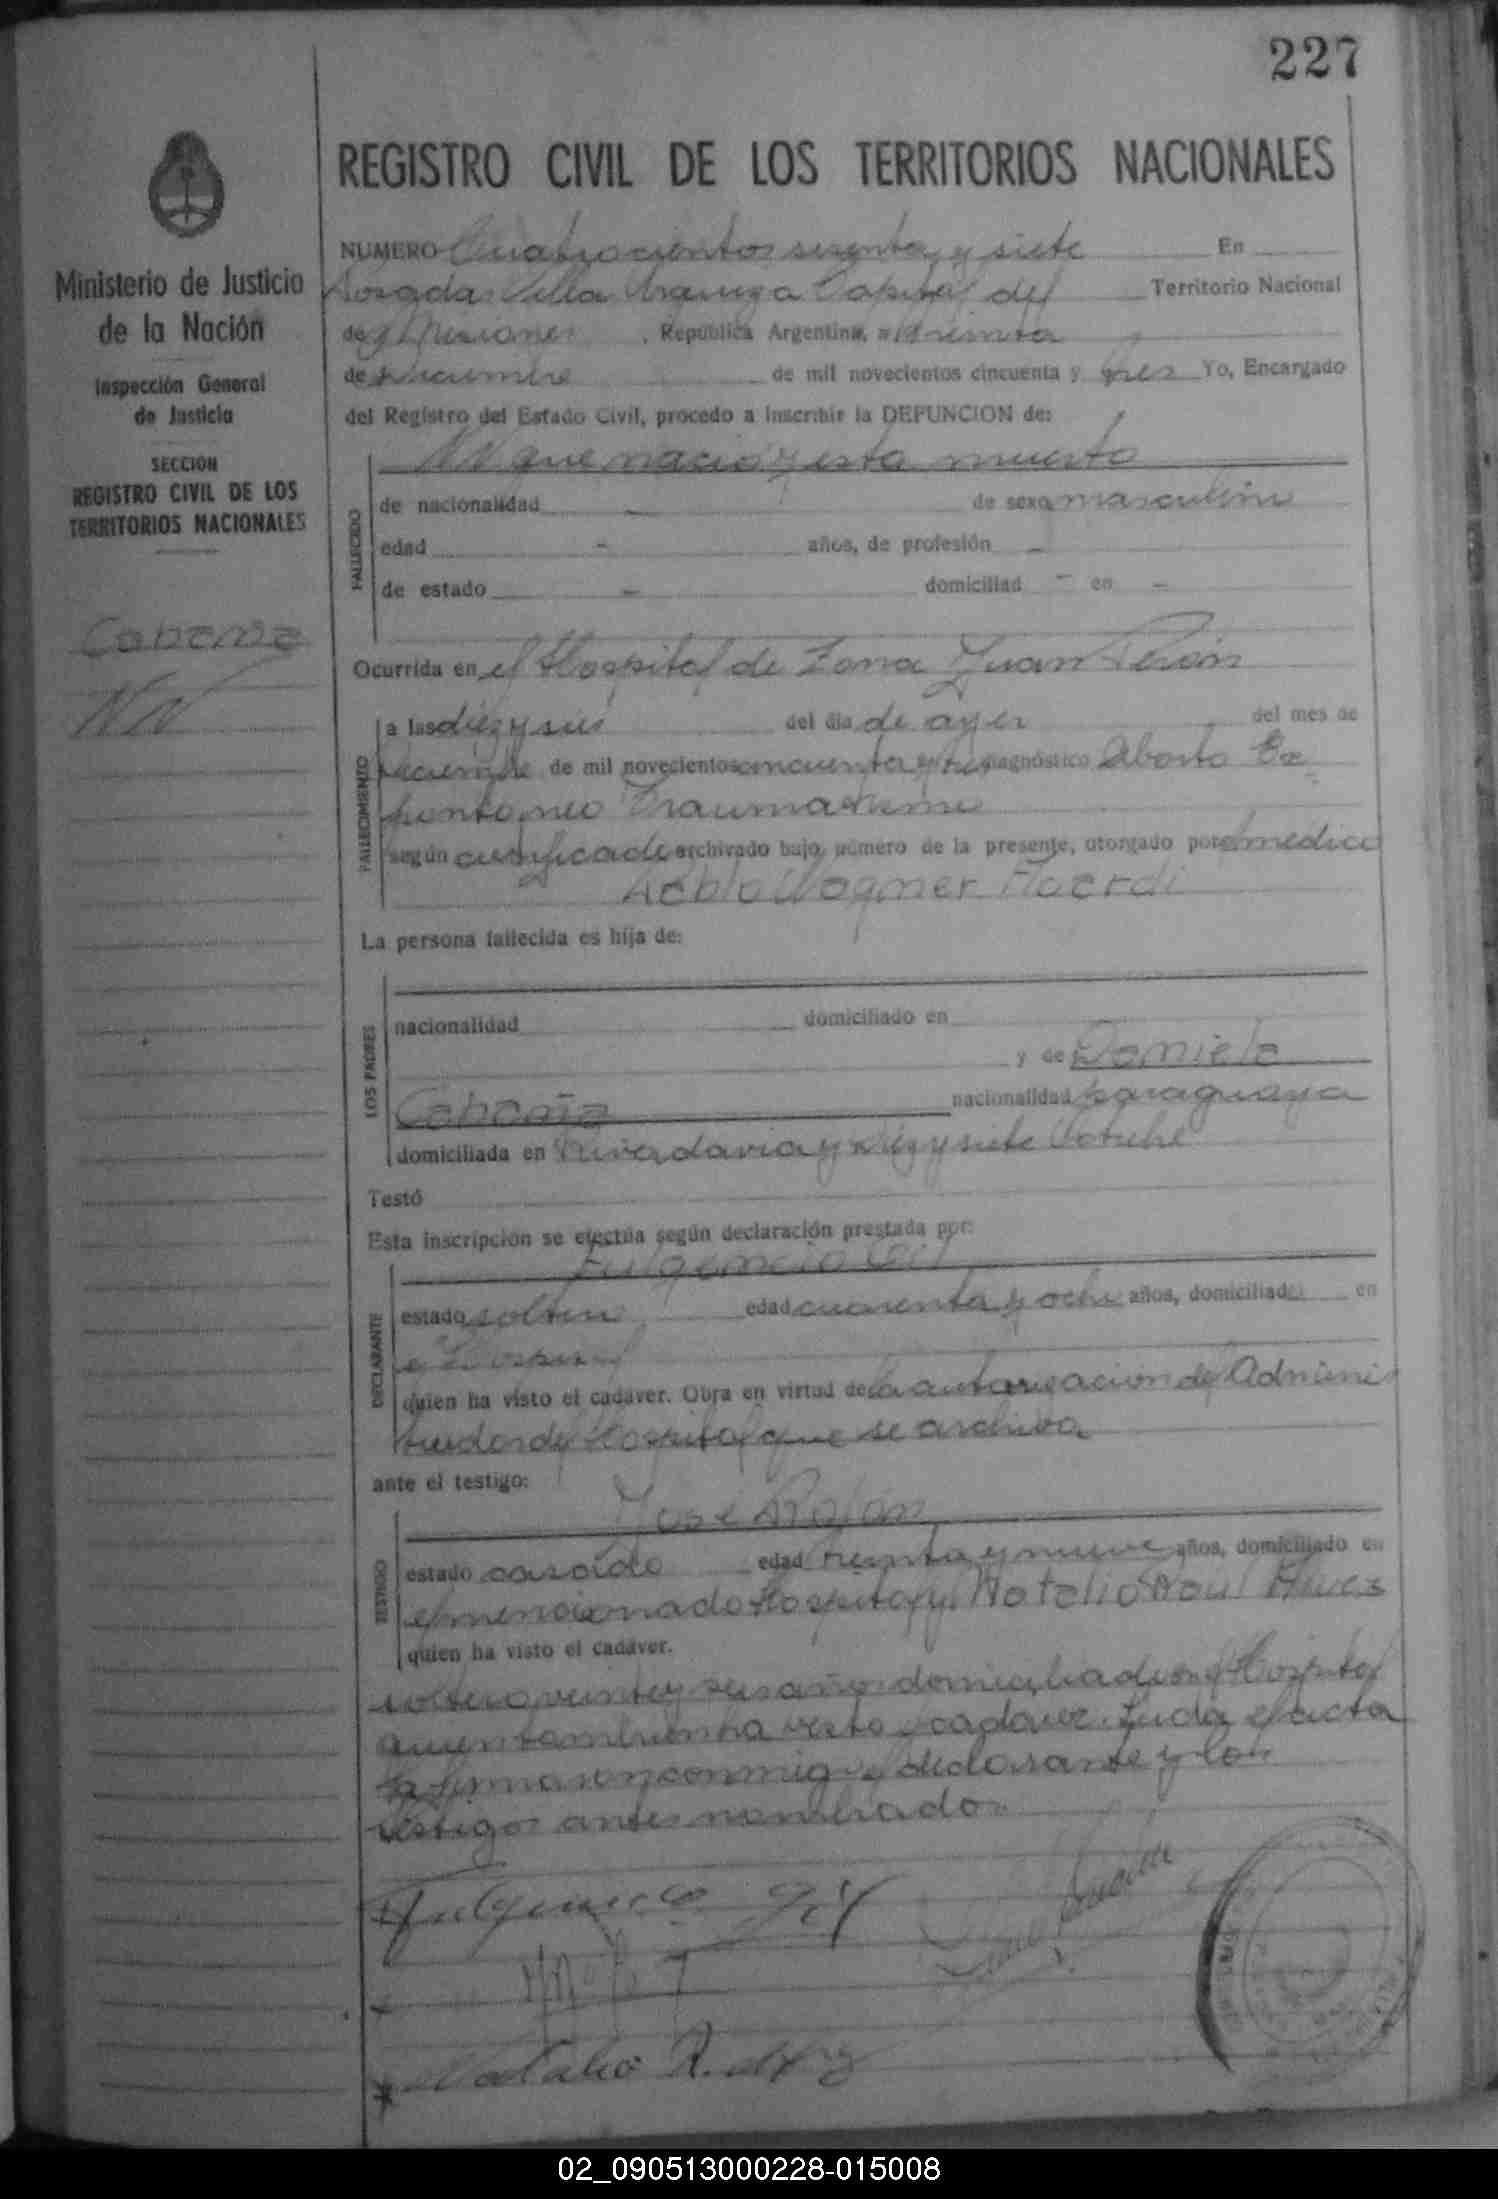 227
REGISTRO CIVIL DE LOS TERRITORIOS NACIONALES
Ministerio de Justicio
de la Nación
Inspección General
de Justicia
SECCION
REGISTRO CIVIL DE LOS
TERRITORIOS NACIONALES
Cabaña
NN
NUMERO Cuatrocientos sesenta y siete En
Posadas Villa Urquiza Capital del Territorio Nacional
de Misiones, República Argentina, a
de Diciembre de mil novecientos cincuenta y tres Yo, Encargado
del Registro del Estado Civil, procedo a inscribir la DEFUNCION de:
NN que nació y esta muerto
FALLECIDO
de nacionalidad - de sexo masculino
edad - años, de profesión -
de estado - domiciliad - en -
Ocurrida en el Hospital de Zona Juan Perón
FALLECIMIENTO
a las diez y seis del día de ayer del mes de
Diciembre de mil novecientos cincuenta y tres diagnóstico Aborto Es
pontaneo Traumatismo
según certificado archivado bajo número de la presente, otorgado por el medico
Pablo Wagner
La persona fallecida es hija de:
LOS PADRES
nacionalidad domiciliado en
y de Daniela
Cabaña nacionalidad paraguaya
domiciliada en Rivadavia y diez y siete
Testó
Esta inscripción se efectúa según declaración prestada por:
Fulgencio Gil
DECLARANTE
estado soltero edad cuarenta y ocho años, domiciliado en
el Hospital
quien ha visto el cadáver. Obra en virtud de la autorización del Adminis
trador del Hospital que se archiva
ante el testigo:
José
TESTIGO
estado casado edad treinta y nueve años, domiciliado en
el mencionado Hospital y Natalio Raul
quien ha visto el cadáver.
soltero veinte y seis años domiciliado en el Hospital
quien tambien ha visto el cadaver. Leida el acta
la firmaron conmigo el declarante y los
testigos antes nombrados.
Fulgencio Gil
Natalio R.
02_090513000228-015008